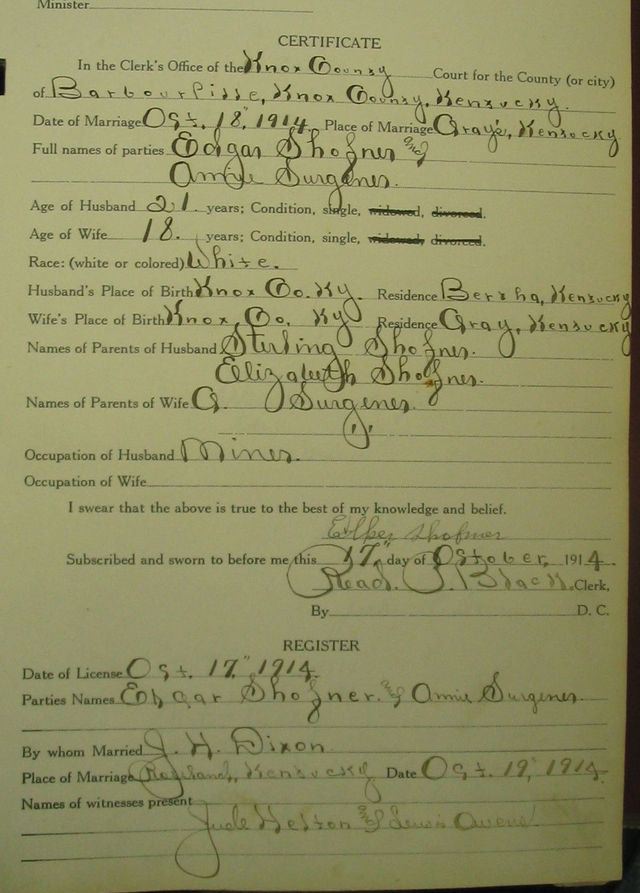 Minister
CERTIFICATE
In the Clerk's Office of the Knox County Court for the County (or city)
of Barbourville, Knox County, Kentucky.
Date of Marriage Oct. 18, 1914 Place of Marriage Gray's, Kentucky
Full names of parties Edgar Shofner and
Annie Surgener.
Age of Husband 21 years; Condition, single, widowed, divorced.
Age of Wife 18. years; Condition, single, widowed, divorced.
Race: (white or colored) White.
Husband's Place of Birth Knox Co. Ky. Residence Bertha, Kentucky
Wife's Place of Birth Knox Co. Ky Residence Gray, Kentucky
Names of Parents of Husband Sterling Shofner.
Elizabeth Shofner.
Names of Parents of Wife G. Surgener.
Occupation of Husband Miner.
Occupation of Wife
I swear that the above is true to the best of my knowledge and belief.
Shofner
Subscribed and sworn to before me this 17" day of October, 1914.
Read P. Black. Clerk,
By D. C.
REGISTER
Date of License Oct. 17" 1914
Parties Names Edgar Shofner. & Annie Surgener.
By whom Married J. H. Dixon
Place of Marriage Kentucky Date Oct. 19, 1914.
Names of witnesses present
Jude Helton & Lewis